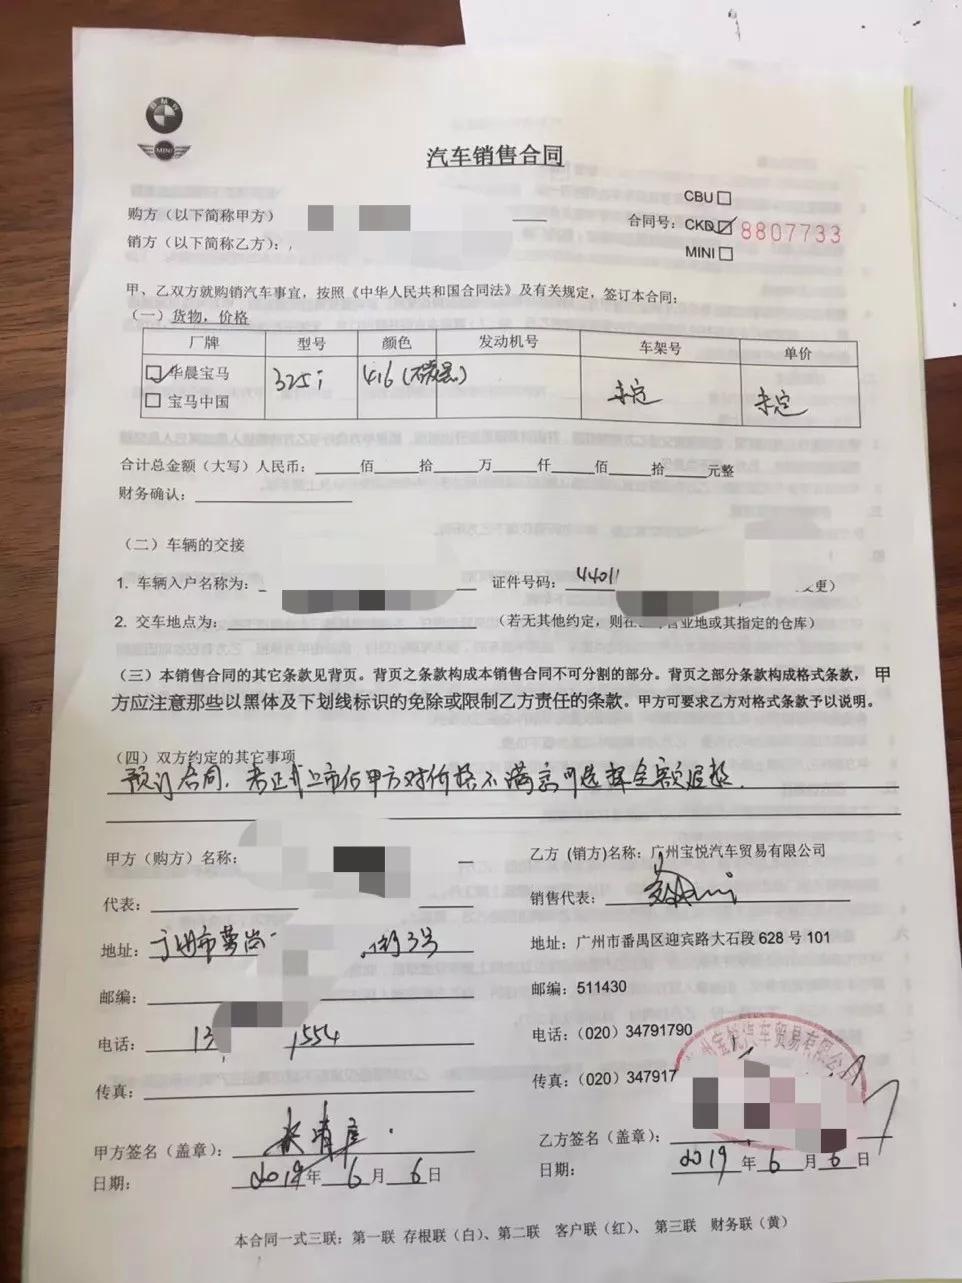 BMW
MINI
汽车销售合同
CBU
购方（以下简称甲方）
合同号：CKD 8807733
销方（以下简称乙方）：
MINI
甲、乙双方就购销汽车事宜，按照《中华人民共和国合同法》及有关规定，签订本合同：
（一）货物，价格
厂牌 型号 颜色 发动机号 车架号 单价
华晨宝马 325i 416 未定 未定
宝马中国
合计总金额（大写）人民币： 佰 拾 万 仟 佰 拾 元整
财务确认：
（二）车辆的交接
1. 车辆入户名称为： 证件号码：44011 更）
2. 交车地点为： （若无其他约定，则在 营业地或其指定的仓库）
（三）本销售合同的其它条款见背页。背页之条款构成本销售合同不可分割的部分。背页之部分条款构成格式条款，甲
方应注意那些以黑体及下划线标识的免除或限制乙方责任的条款。甲方可要求乙方对格式条款予以说明。
（四）双方约定的其它事项
预订合同，未正式上市后甲方对价格不满意可选择全额退款.
甲方（购方）名称： 乙方（销方)名称：广州宝悦汽车贸易有限公司
代表： 销售代表：
地址：广州市萝岗 街3号 地址：广州市番禺区迎宾路大石段 628 号 101
邮编： 邮编：511430
电话：13 1554 电话：（020）34791790
传真： 传真：（020）347917
州宝悦汽车贸易有限公司
甲方签名（盖章）： 乙方签名（盖章）：
日期： 2019年 6 月 6 日 日期： 2019 年 6 月 6 日
本合同一式三联：第一联 存根联（白）、第二联 客户联（红）、 第三联 财务联（黄）